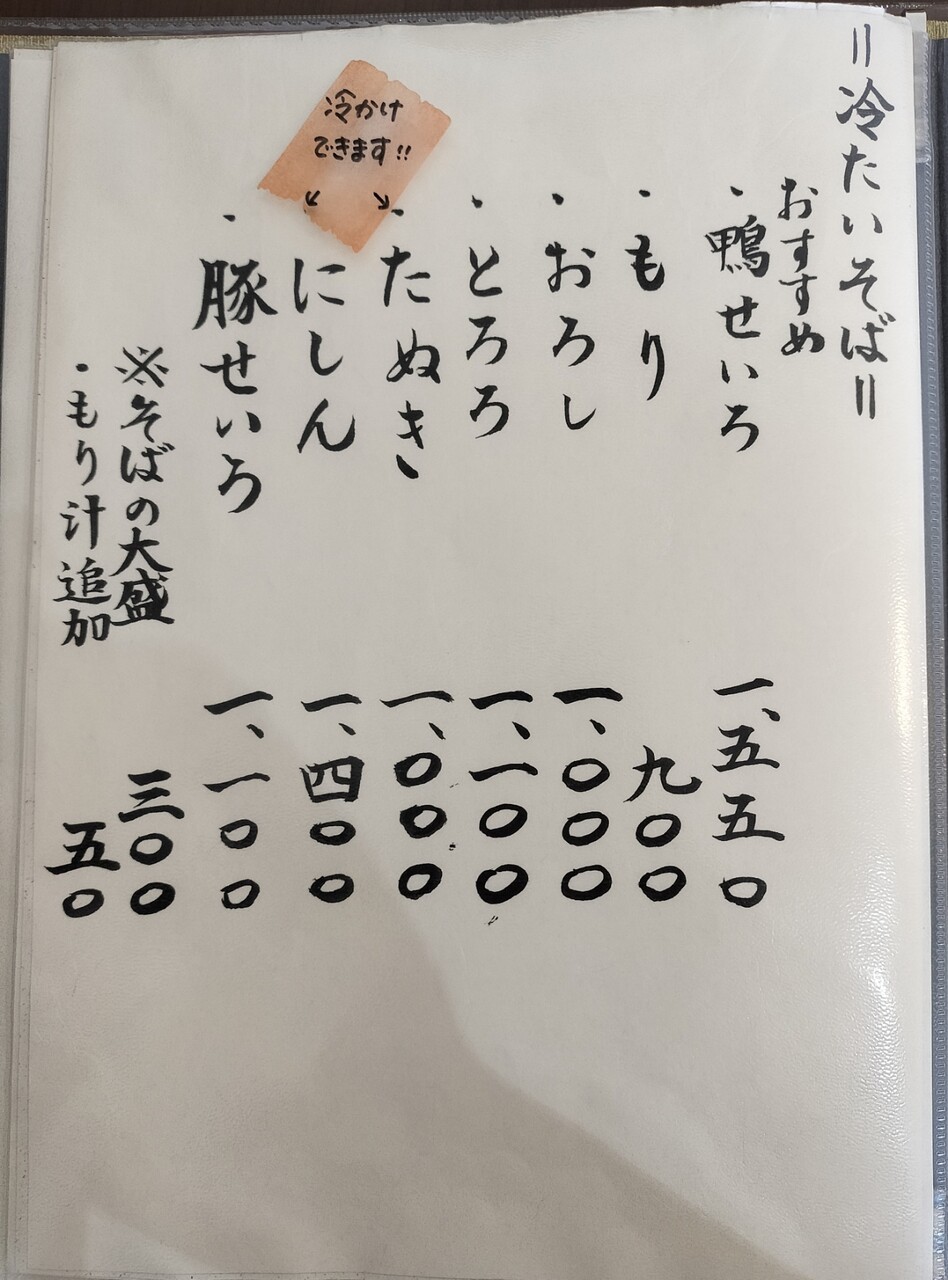 ＝冷たいそば＝
おすすめ
・鴨せいろ 一、五五〇
・もり 九〇〇
・おろし 一、〇〇〇
・とろろ 一、一〇〇
・たぬき 一、〇〇〇
にしん 一、四〇〇
冷かけ
できます!!
・豚せいろ 一、一〇〇
※そばの大盛 三〇〇
・もり汁追加 五〇